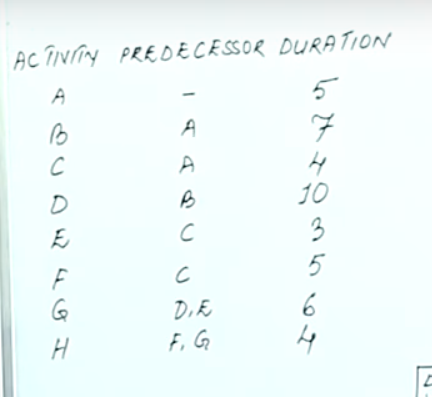 ACTIVITY PREDECESSOR DURATION
A - 5
B A 7
C A 4
D B 10
E C 3
F C 5
G D,E 6
H F,G 4